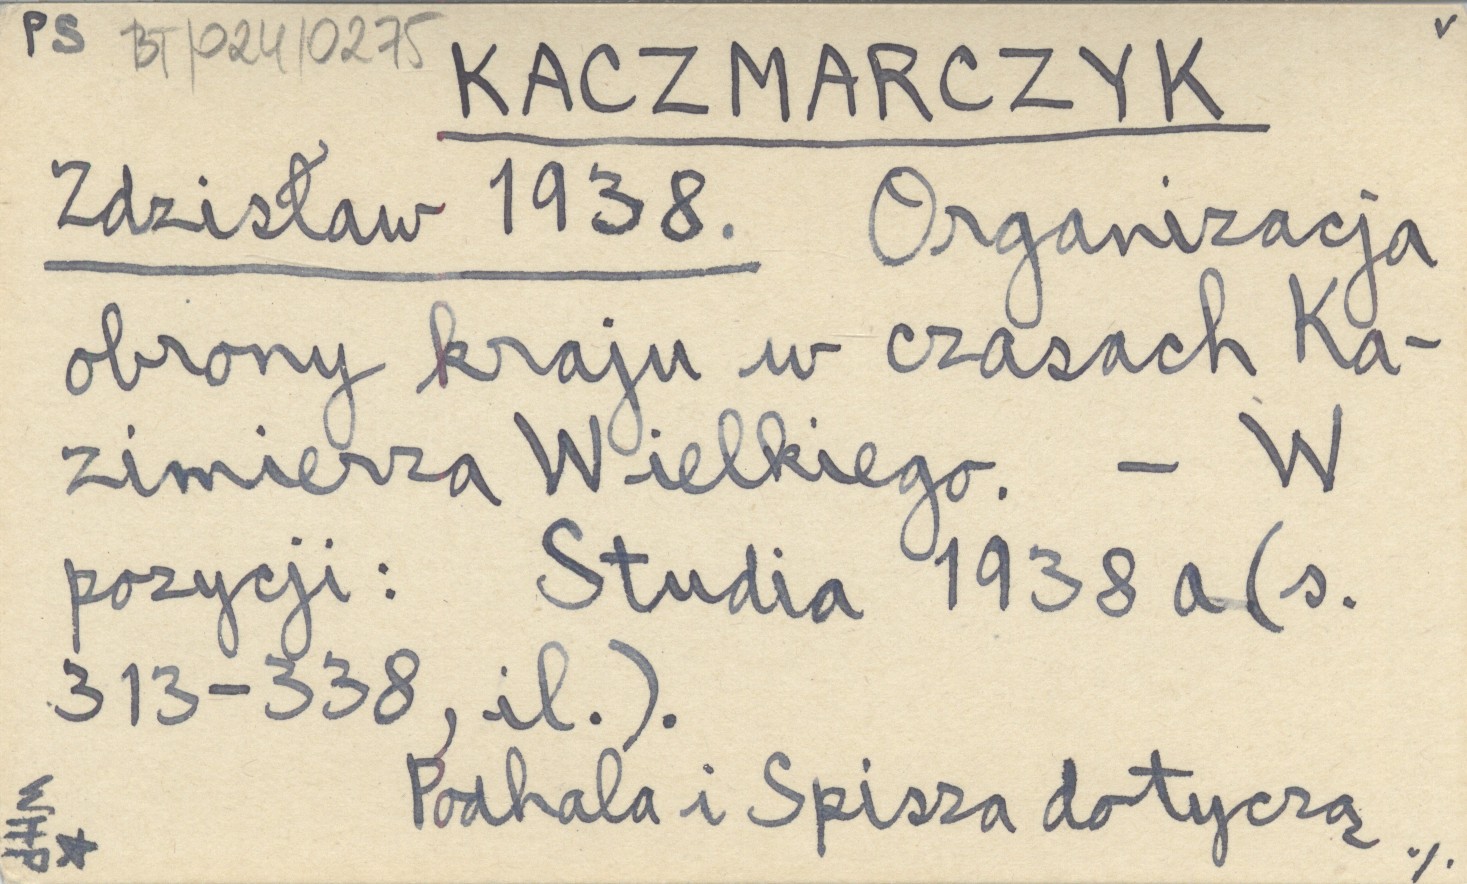 PS BT/024/0275 v
KACZMARCZYK
Zdzisław 1938. Organizacja
obrony kraju w czasach Ka-
zimierza Wielkiego. - W
pozycji: Studia 1938 a (s.
313-338, il.).
Podhala i Spisza dotyczą ./.
WHP